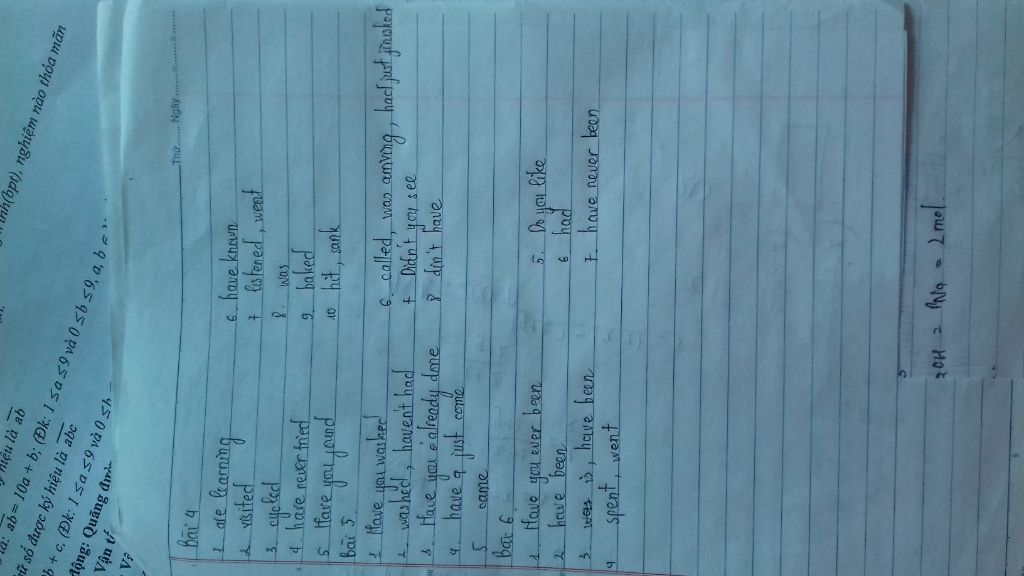 vinh(bpt), nghiệm nào thỏa mãn
hiệu là ab
là: ab = 10a + b; (Đk: 1 ≤ a ≤ 9 và 0 ≤ b ≤ 9, a, b
số được ký hiệu là abc
b + c, (Đk: 1 ≤ a ≤ 9 và 0 ≤ b
động: Quãng đường
Vận
Thứ....... Ngày
Bài 4
1 are learning
2 visited
3 cycled
4 have never tried
5 Have you found
6 have known
7 listened, went
8. was
9 baked
10 hit, sank
Bài 5.
1 Have you washed
2 washed, haven't had
3. Have you already done
4. have just come
5 came
6 called, was arriving, had just finished
7 Didn't you see
8 din't have
Bài 6
1. Have you ever been
2 have been
3 was is, have been
4 spent, went
5. Do you like
6 had
7. have never been
OH = nNa = 2 mol